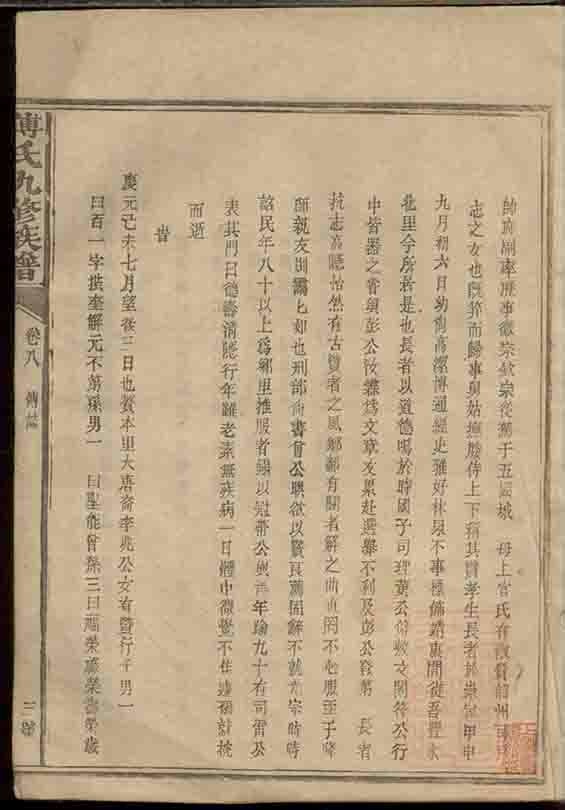 帥府副率歷事徽宗欽宗從葬于五國城 母上官氏
志之女也既笄而歸事舅姑撫媵侍上下稱其賢孝生長者於崇寧甲申
九月初六日幼尚高潔博通經史雅好林泉不事標飾靖康間從吾豐水
北里今所居是也長者以道德鳴於時國子司理黃公 文閣待公行
中皆器之嘗與彭公汝 為文章友累赴選舉不利及彭公登第 長者
抗志高隱怡然有古賢者之風鄉鄰有鬪者解之曲直罔不心服至于睦
師親友周 匕如也刑部尚書曾公 欲以賢良薦固辭不就光宗時
詔民年八十以上為鄉里推服者錫以冠帶公與 年踰九十有司雷公
表其門曰德壽清隱行年雖老素無疾病一日體中微覺不佳遽 計
而逝
旹
慶元己未七月望後三日也贅本里大唐裔李兆公女有懿行子男一
曰百一字拱奎解元不第孫男一 曰聖能曾孫三曰福榮 榮壽榮歲
傅氏九修族譜
卷八 傳誌
三